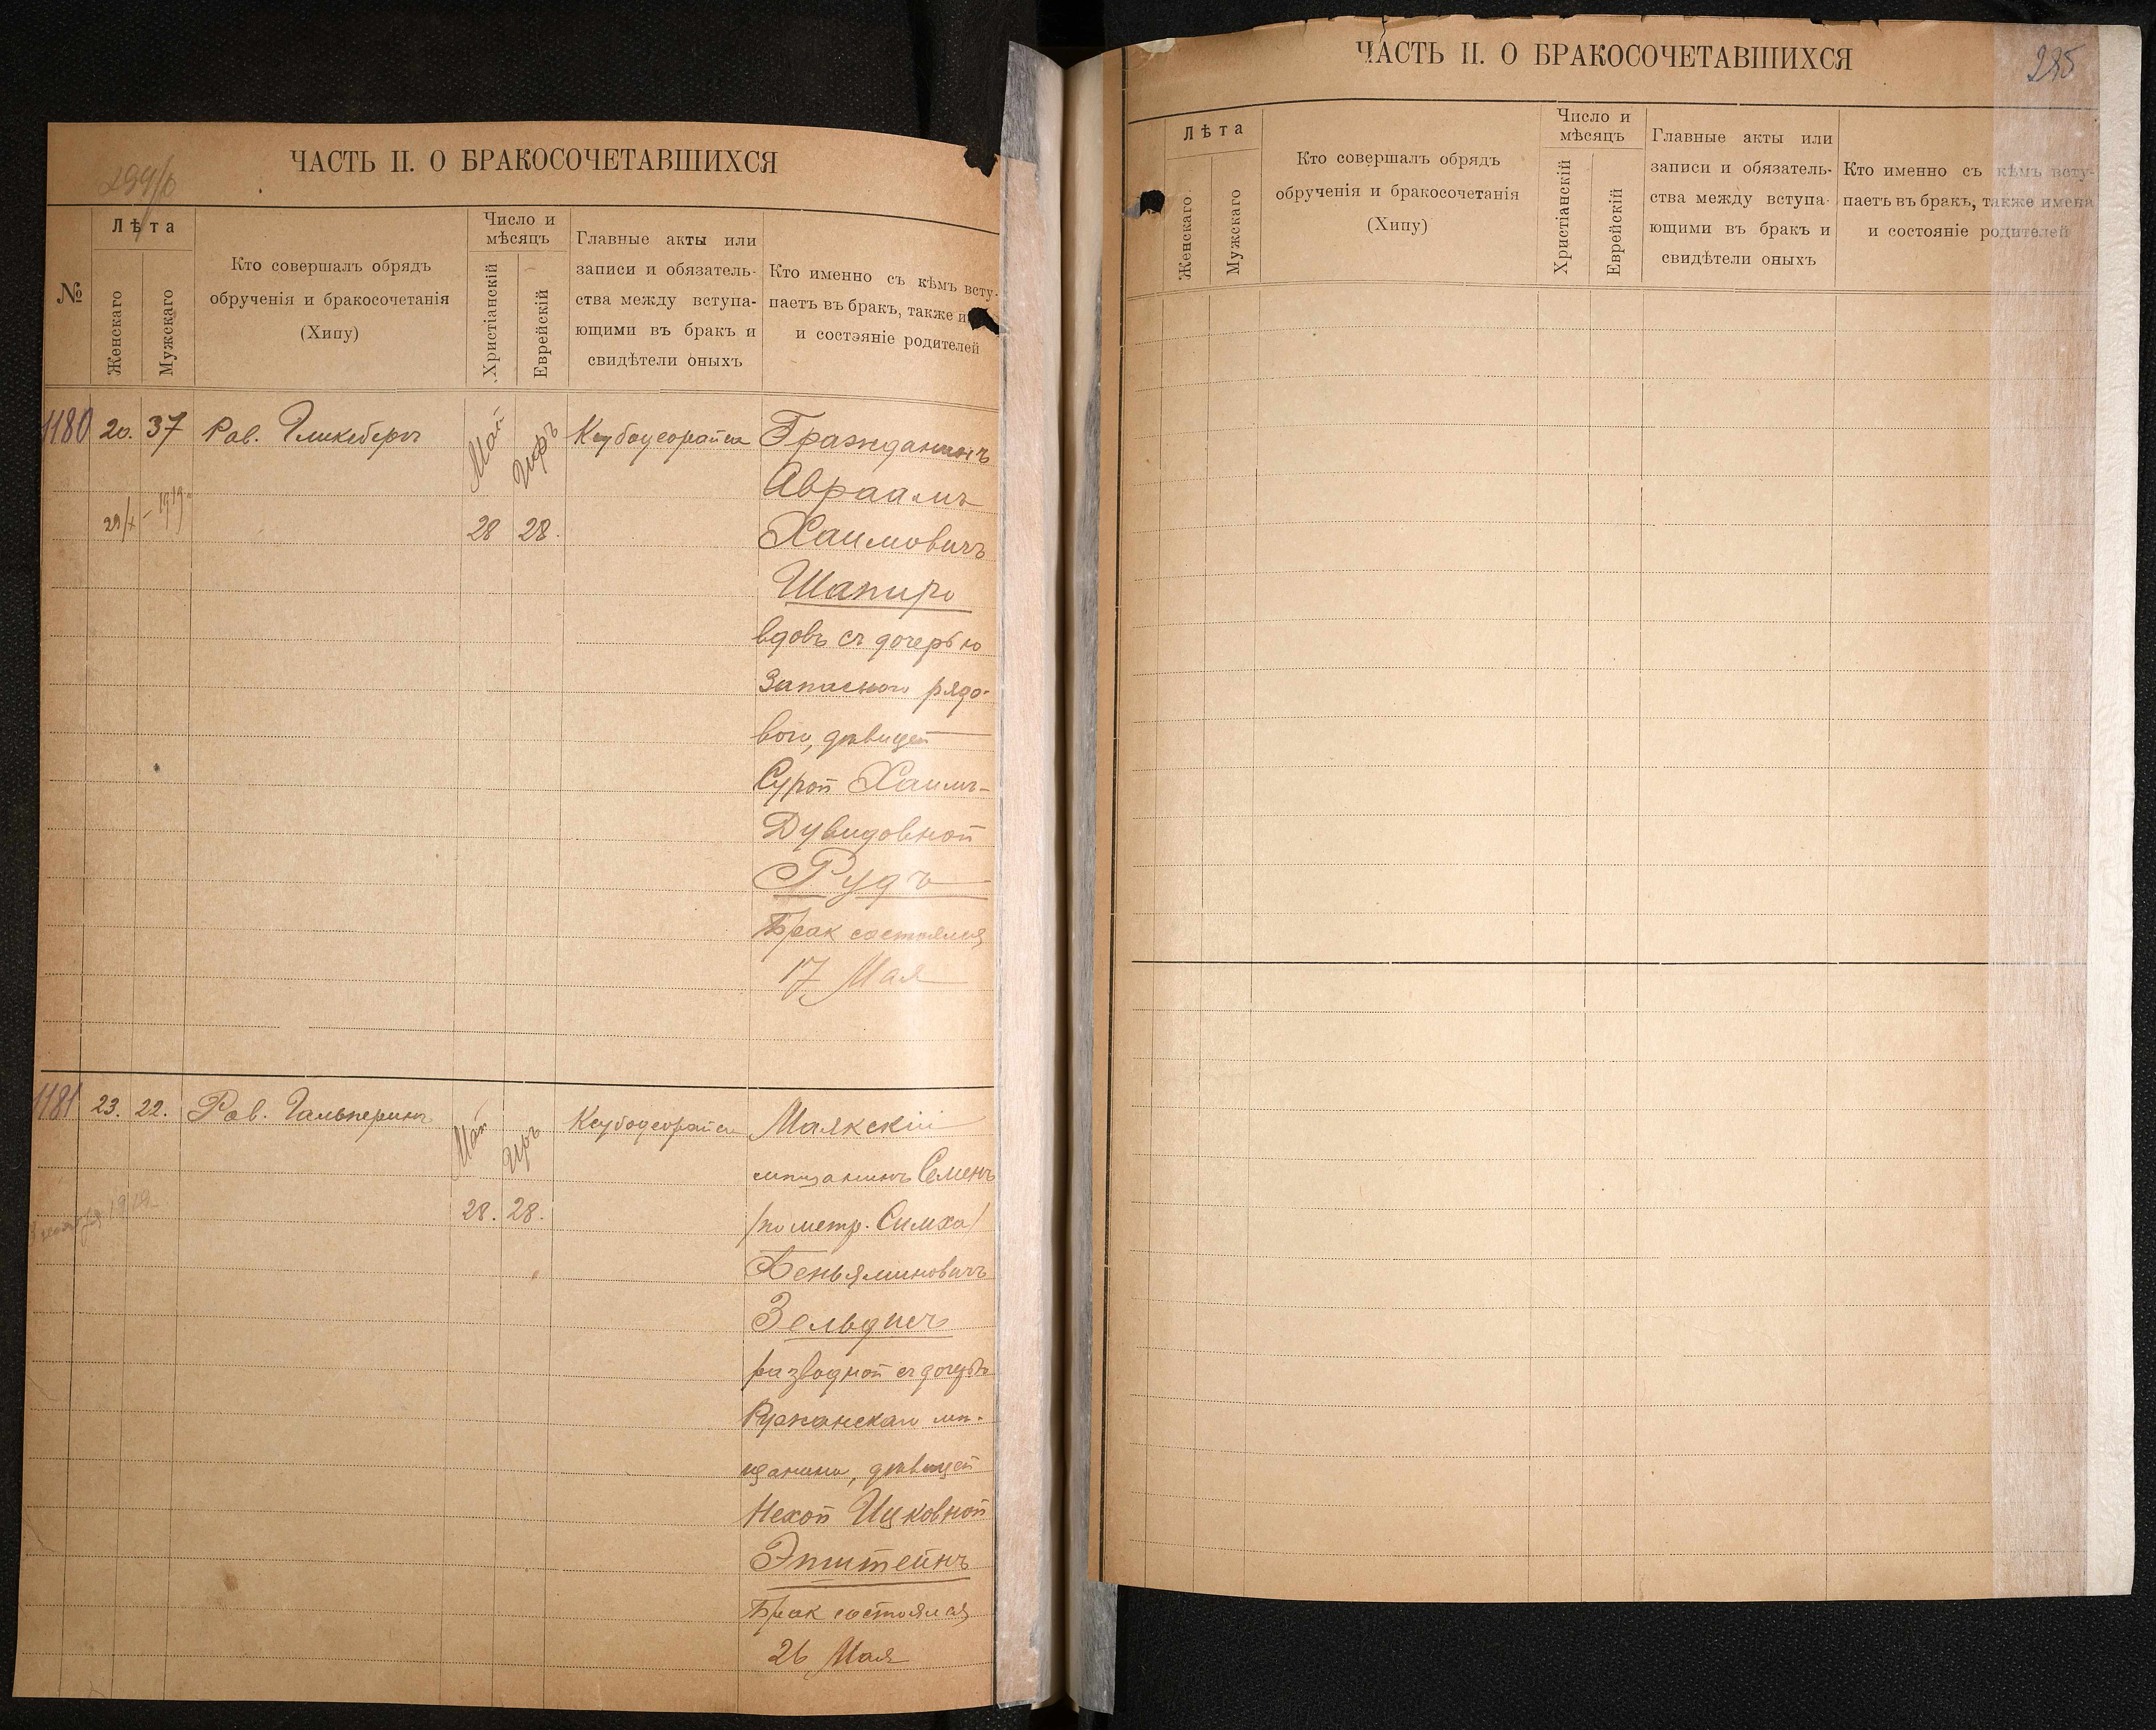 ЧАСТЬ II. О БРАКОСОЧЕТАВШИХСЯ
№
Лѣта
Женскаго
Мужскаго
Кто совершалъ обрядъ
обрученія и бракосочетанія
(Хипу)
Число и
мѣсяцъ
Христіанскій
Еврейскій
Главные акты или
записи и обязатель-
ства между вступа-
ющими въ бракъ и
свидѣтели оныхъ
Кто именно съ кѣмъ всту-
паетъ въ бракъ, также и
и состэяніе родителей
1180
20.
37
Рав. Гликсбергъ
Май
28
28.
Гражданинъ
Авраамъ
Хаимовичъ
Шапиро
вдовъ съ дочерью
Запасного рядо-
вого, дѣвицей
Сурой Хаимъ-
Дувидовной
Рудъ
Брак состоялся
17 Мая
29/X – 1919
1181
23.
22.
Рав. Гальперинъ
Май
28.
28.
Маякскій
мѣщанинъ Семенъ
/по метр. Симха/
Беньяминовичъ
Зельдисъ
разводной съ дочерью
Ружанскаго мѣ-
щанина, дѣвицей
Нехой Ицковной
Эпштейнъ
Брак состоялся
26 Мая
ЧАСТЬ II. О БРАКОСОЧЕТАВШИХСЯ
285
Лѣта
Женскаго
Мужскаго
Кто совершалъ обрядъ
обрученія и бракосочетанія
(Хипу)
Число и
мѣсяцъ
Христіанскій
Еврейскій
Главные акты или
записи и обязатель-
ства между вступа-
ющими въ бракъ и
свидѣтели оныхъ
Кто именно съ кѣмъ всту-
паетъ въ бракъ, также имена
и состояніе родителей